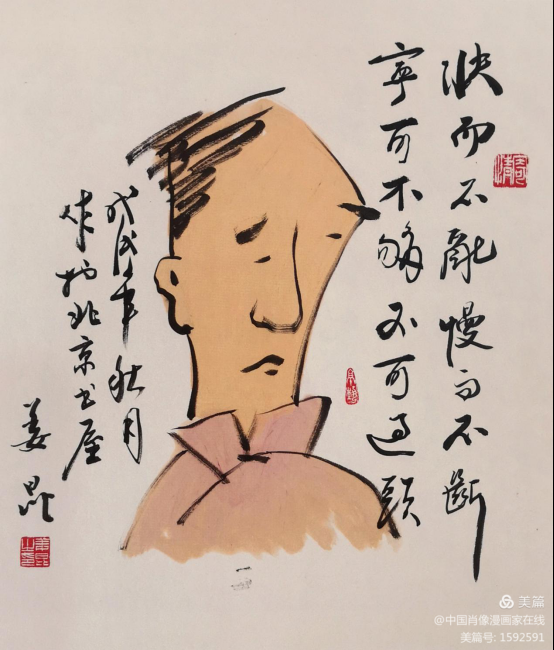 快而不亂慢而不斷
寧可不够不可過頭
戊戌年秋月
作於北京书屋
姜昆
美篇
@中国肖像漫画家在线
美篇号: 1592591